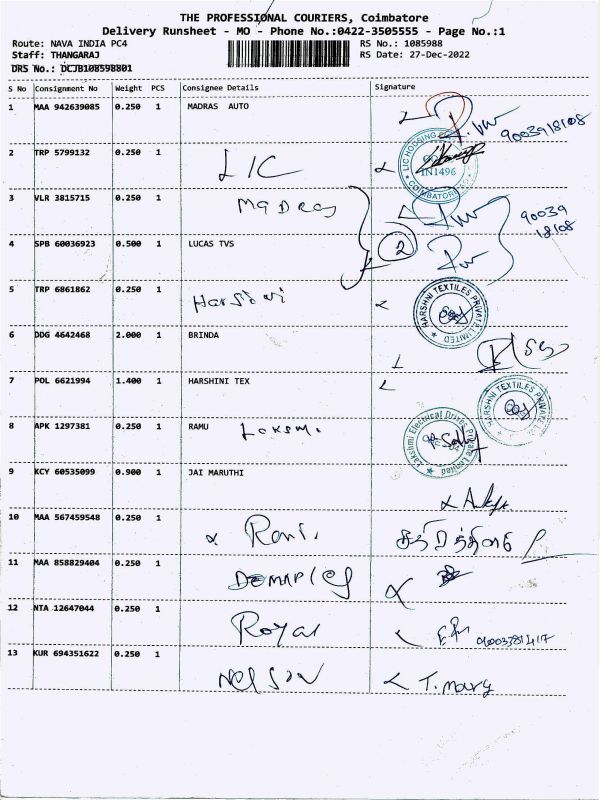 THE PROFESSIONAL COURIERS, Coimbatore
Delivery Runsheet - MO - Phone No.:0422-3505555 - Page No.:1
Route: NAVA INDIA PC4 RS No.: 1085988
Staff: THANGARAJ RS Date: 27-Dec-2022
DRS No.: DCJB108598801
S No Consignment No Weight PCS Consignee Details Signature
1 MAA 942639085 0.250 1 MADRAS AUTO
9003918108
2 TRP 5799132 0.250 1 LIC
LIC HOUSING
IN1496
COIMBATORE
3 VLR 3815715 0.250 1 Madras
90039
18108
4 SPB 60036923 0.500 1 LUCAS TVS 2
5 TRP 6861862 0.250 1 Harsini
HARSHNI TEXTILES PRIVATE LIMITED
6 DDG 4642468 2.000 1 BRINDA
7 POL 6621994 1.400 1 HARSHINI TEX
HARSHNI TEXTILES PRIVATE LIMITED
8 APK 1297381 0.250 1 RAMU
Lakshmi Electrical Drives Private Limited
9 KCY 60535099 0.900 1 JAI MARUTHI
10 MAA 567459548 0.250 1
11 MAA 858829404 0.250 1
12 NTA 12647044 0.250 1 Royal
13 KUR 694351622 0.250 1 Nelson T. mary